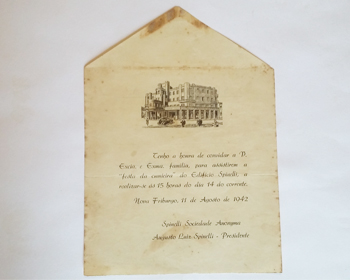 Tenho a honra de convidar a V.
Excia. e Exma. família, para assistirem a
"festa da cumieira" do Edifício Spinelli, a
realizar-se às 15 horas do dia 14 do corrente.
Nova Friburgo, 11 de Agosto de 1942
Spinelli Sociedade Anônima
Augusto Luiz Spinelli - Presidente